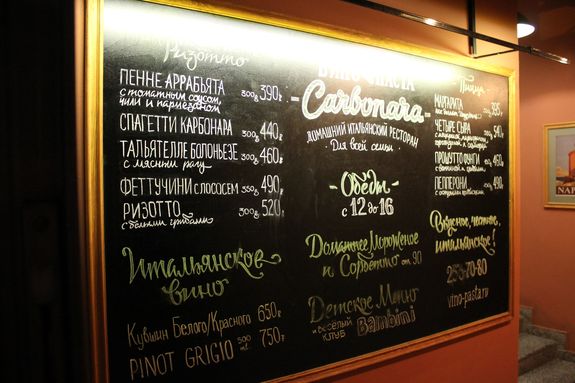 Ризотто
ПЕННЕ АРРАБЬЯТА 300g 390.-
с томатным соусом,
чили и пармезаном
СПАГЕТТИ КАРБОНАРА 300g 440.-
ТАЛЬЯТЕЛЛЕ БОЛОНЬЕЗЕ 300g 460.-
с мясным рагу
ФЕТТУЧИНИ с лососем 350g 490.-
РИЗОТТО 300g 520.-
с белыми грибами
Итальянское
вино
Кувшин Белого/Красного 650г.
PINOT GRIGIO 500 ml. 750г.
ВИНО ПАСТА
Carbonara
ДОМАШНИЙ ИТАЛЬЯНСКИЙ РЕСТОРАН
Для всей семьи
Обеды
с 12 до 16
Домашнее Мороженое
и Сорбетто от 90
Детское Меню
и ВЕСЁЛЫЙ КЛУБ Bambini
Пицца
МАРГАРИТА 395,-
ЧЕТЫРЕ СЫРА
ПРОШУТТО ФУНГИ 450,-
с ветчиной и грибами
ПЕППЕРОНИ 490,-
Вкусное, честное,
итальянское!
70-80
vino-pasta.ru
NAP